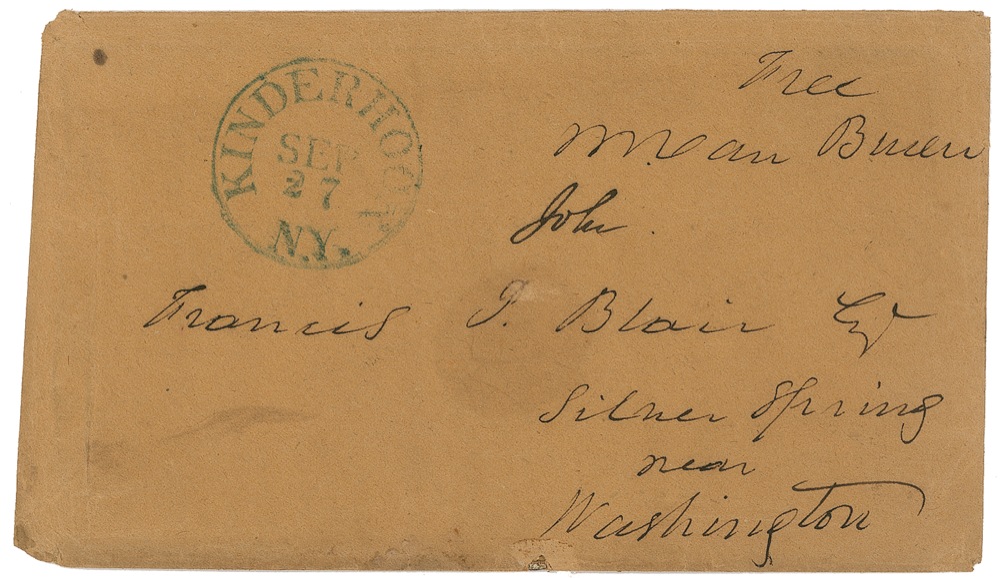 KINDERHOOK
SEP
27
N.Y.
Free
M Van Buren
John
Francis P. Blair Esqr
Silver Spring
near
Washington